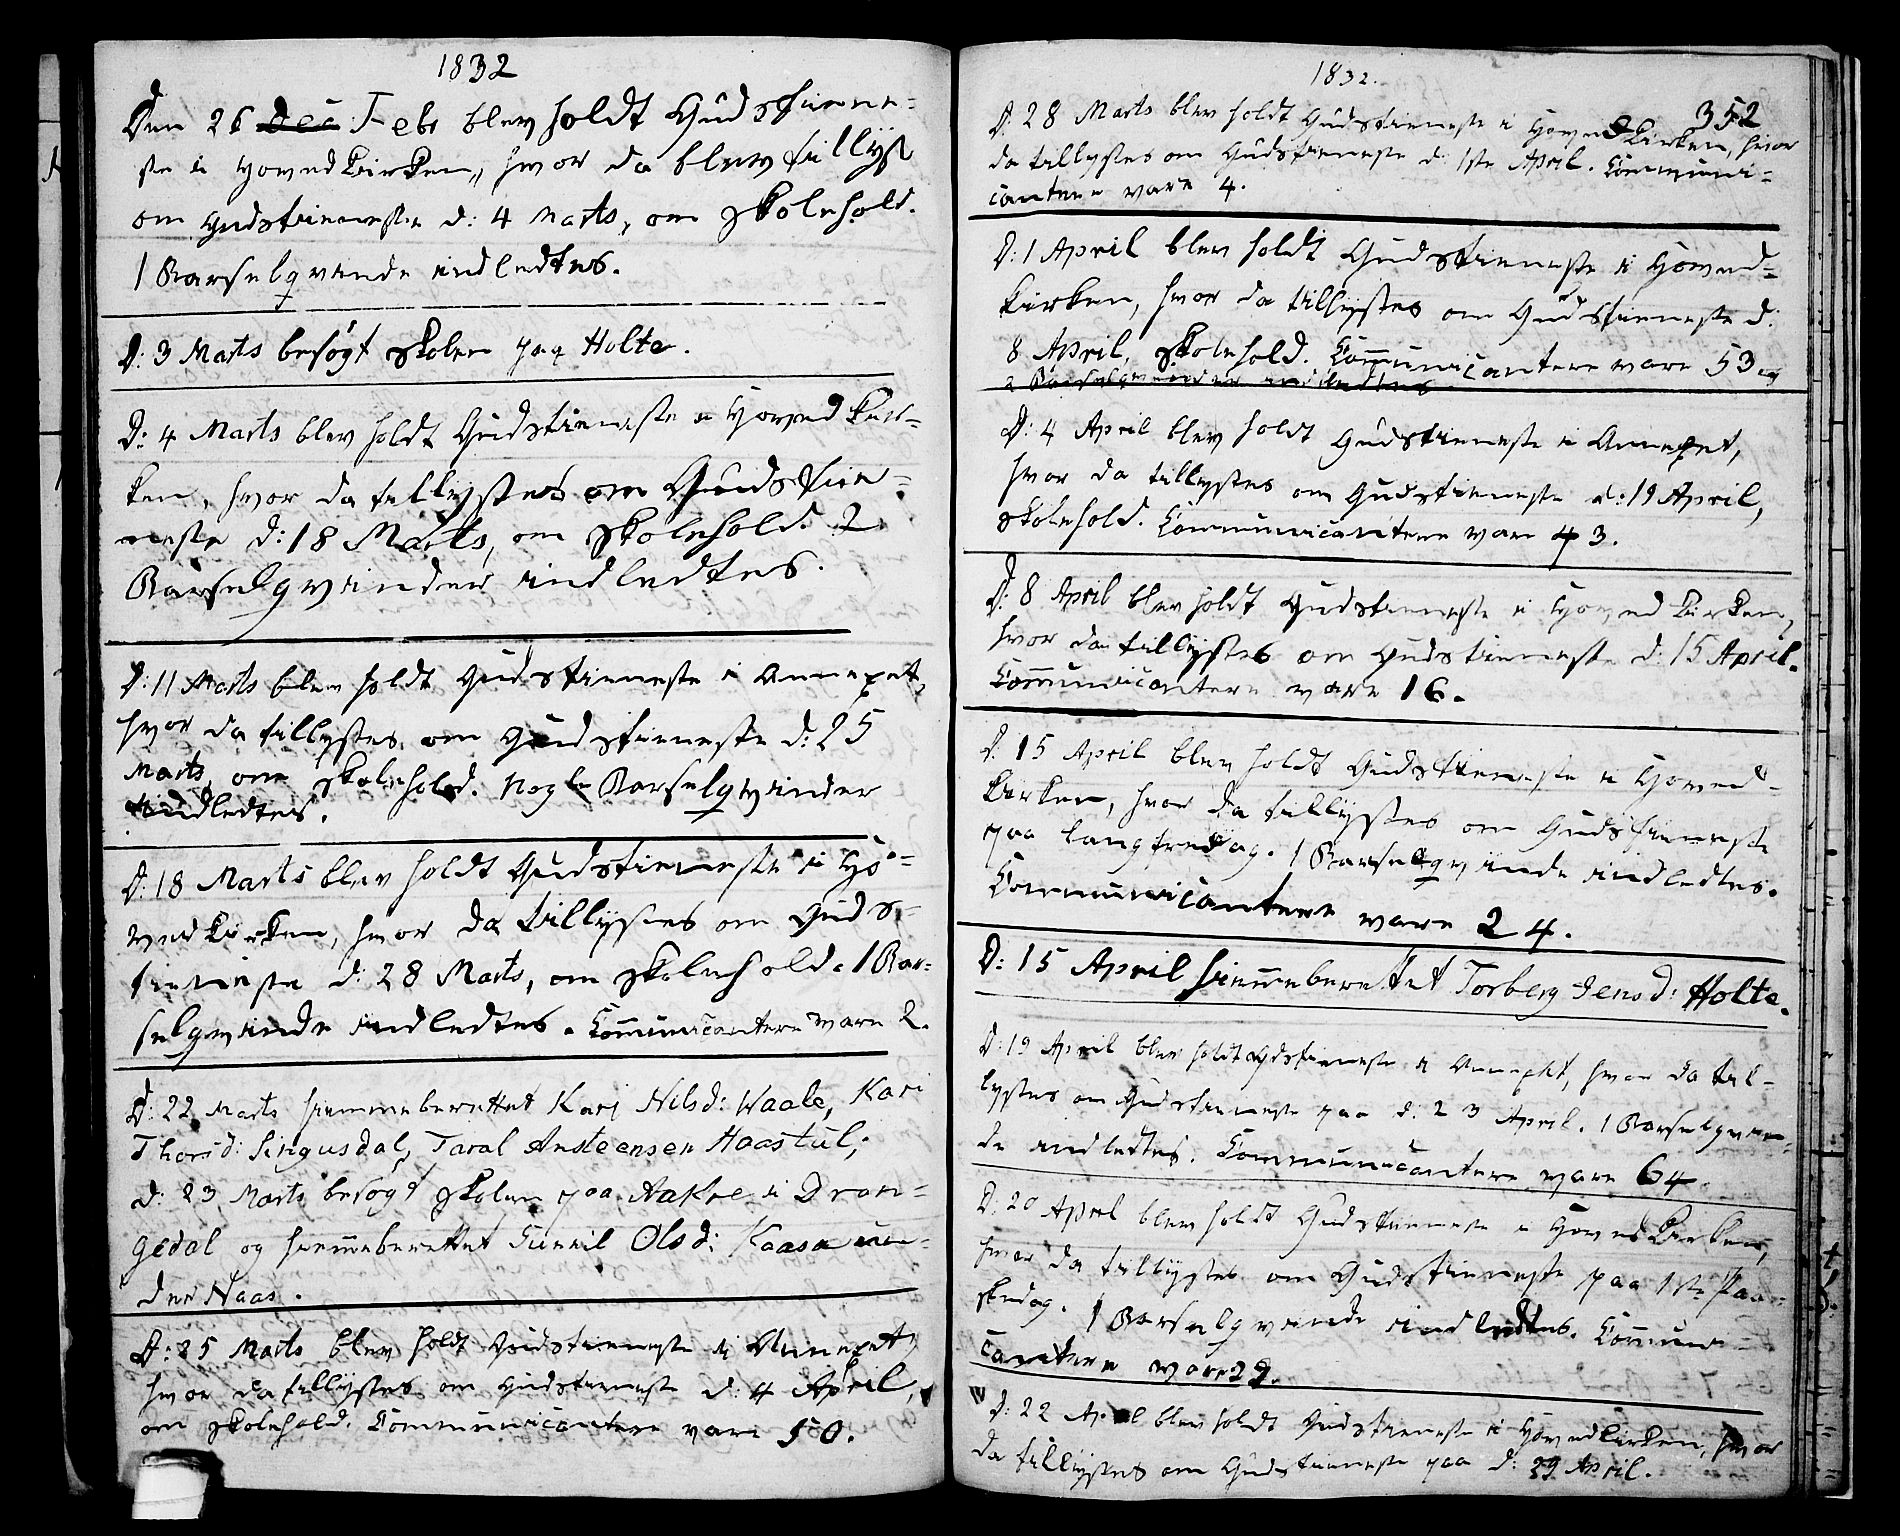 1832
Den 26 Dec Febr blev holdt Gudstienne=
ste i Hovedkirken, hvor da blev tillyst
om Gudstienneste d: 4 Marts, om Skolehold.
1 Barselqvinde indledtes.
D: 3 Marts besögt Skolen paa Holte.
D: 4 Marts blev holdt Gudstieneste i Hovedkir=
ken, hvor da tillystes om Gudstie=
neste d: 18 Marts, om Skolehold. 2
Barselqvinder indledtes.
D: 11 Marts blev holdt Gudstieneste i Annexet,
hvor da tillystes om Gudstieneste d: 25
Marts, om Skolehold. Nogle Barselqvinder
indledtes.
D: 18 Marts blev holdt Gudstieneste i Ho=
vedkirken, hvor da tillystes om Guds=
tieneste d: 28 Marts, om Skolehold. 1 Bar=
selqvinde indledtes. Communicantere vare 2.
D: 22 Marts hiemmeberettet Kari Nilsd: Waale, Kari
Thorsd: Lingusdal, Taral Ansteensen Haastul;
d: 23 Marts besögt Skolen paa Aakre i Dran=
gedal og hiemeberettet Gunnil Olsd: Kaasa un=
der Naas.
D: 25 Marts blev holdt Gudstieneste i Annexet,
hvor da tillystes om Gudstieneste d: 4 April,
om Skolehold. Communicantere vare 50.
1832.
352
D: 28 Marts blev holdt Gudstieneste i Hovedkirken, hvor
da tillystes om Gudstieneste d: 1ste April. Communi=
cantere vare 4.
D: 1 April blev holdt Gudstieneste i Hoved=
kirken, hvor da tillystes om Gudstieneste d:
8 April, Skolehold. Communicantere vare 53 og
2 Barselqvinder indledtes
D: 4 April blev holdt Gudstieneste i Annexet,
hvor da tillystes om Gudstieneste d: 19 April,
Skolehold. Communicantere vare 43.
D: 8 April blev holdt Gudstieneste i Hovedkirken,
hvor da tillystes om Gudstieneste d: 15 April.
Communicantere vare 16.
D: 15 April blev holdt Gudstieneste i Hoved=
kirken, hvor da tillystes om Gudstieneste
paa Langfredag. 1 Barselqvinde indledtes.
Communicantere vare 24.
D: 15 April hiemmeberettet Torberg Jensd: Holte.
D: 19 April blev holdt Gdstieneste i Annexet, hvor da til=
lystes om Gudstieneste paa d: 23 April. 1 Barselqvin=
de indledtes. Communicantere vare 64.
D: 20 April blev holdt Gudstieneste i Hovedkirken,
hvor da tillystes om Gudstieneste paa 1ste Paa=
skedag. 1 Barselqvinde indledtes. Communi=
cantere vare 29.
D: 22 April blev holdt Gudstieneste i Hovedkirken, hvor
da tillystes om Gudstieneste paa d: 29 April.